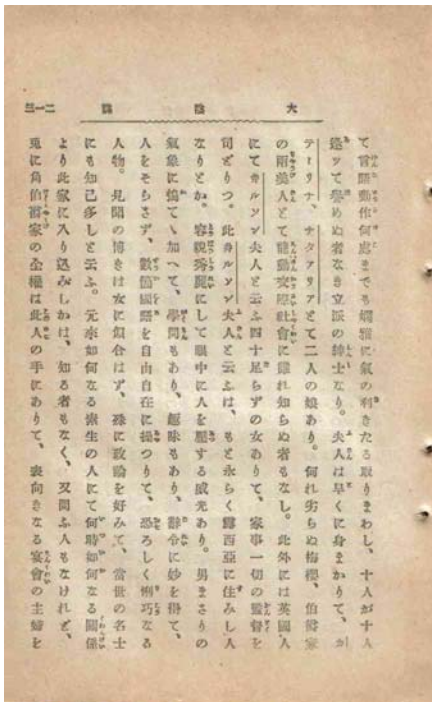 大陰謀
二一三
て言語動作何處までも嫺雅に氣の利きたる取りまわし、十人が十人
逢ッて譽めぬ者なき立派の紳士なり。夫人は早くに身まかりて、カ
テーリナ、ナタアリアとて二人の娘あり。何れ劣らぬ梅櫻、伯爵家
の兩美人とて龍動交際社會に誰れ知らぬ者もなし。此外には英國人
にてカルソン夫人と云ふ四十足らずの女ありて、家事一切の監督を
司どりつ。此カルソン夫人と云ふは、もと永らく露西亞に住みし人
なりとか。容貌秀麗にして眼中に人を壓する威光あり。男まさりの
氣象に搗てゝ加へて、學問もあり、趣味もあり、辭令に妙を得て、
人をそらさず、數箇國語を自由自在に操つりて、恐ろしく悧巧なる
人物。見聞の博きは女に似合はず、殊に政論を好みて、當世の名士
にも知己多しと云ふ。元來如何なる素生の人にて何時如何なる關係
より此家に入り込みしかは、知る者もなく、又問ふ人もなけれど、
兎に角伯爵家の全權は此人の手にありて、表向きなる宴會の主婦を